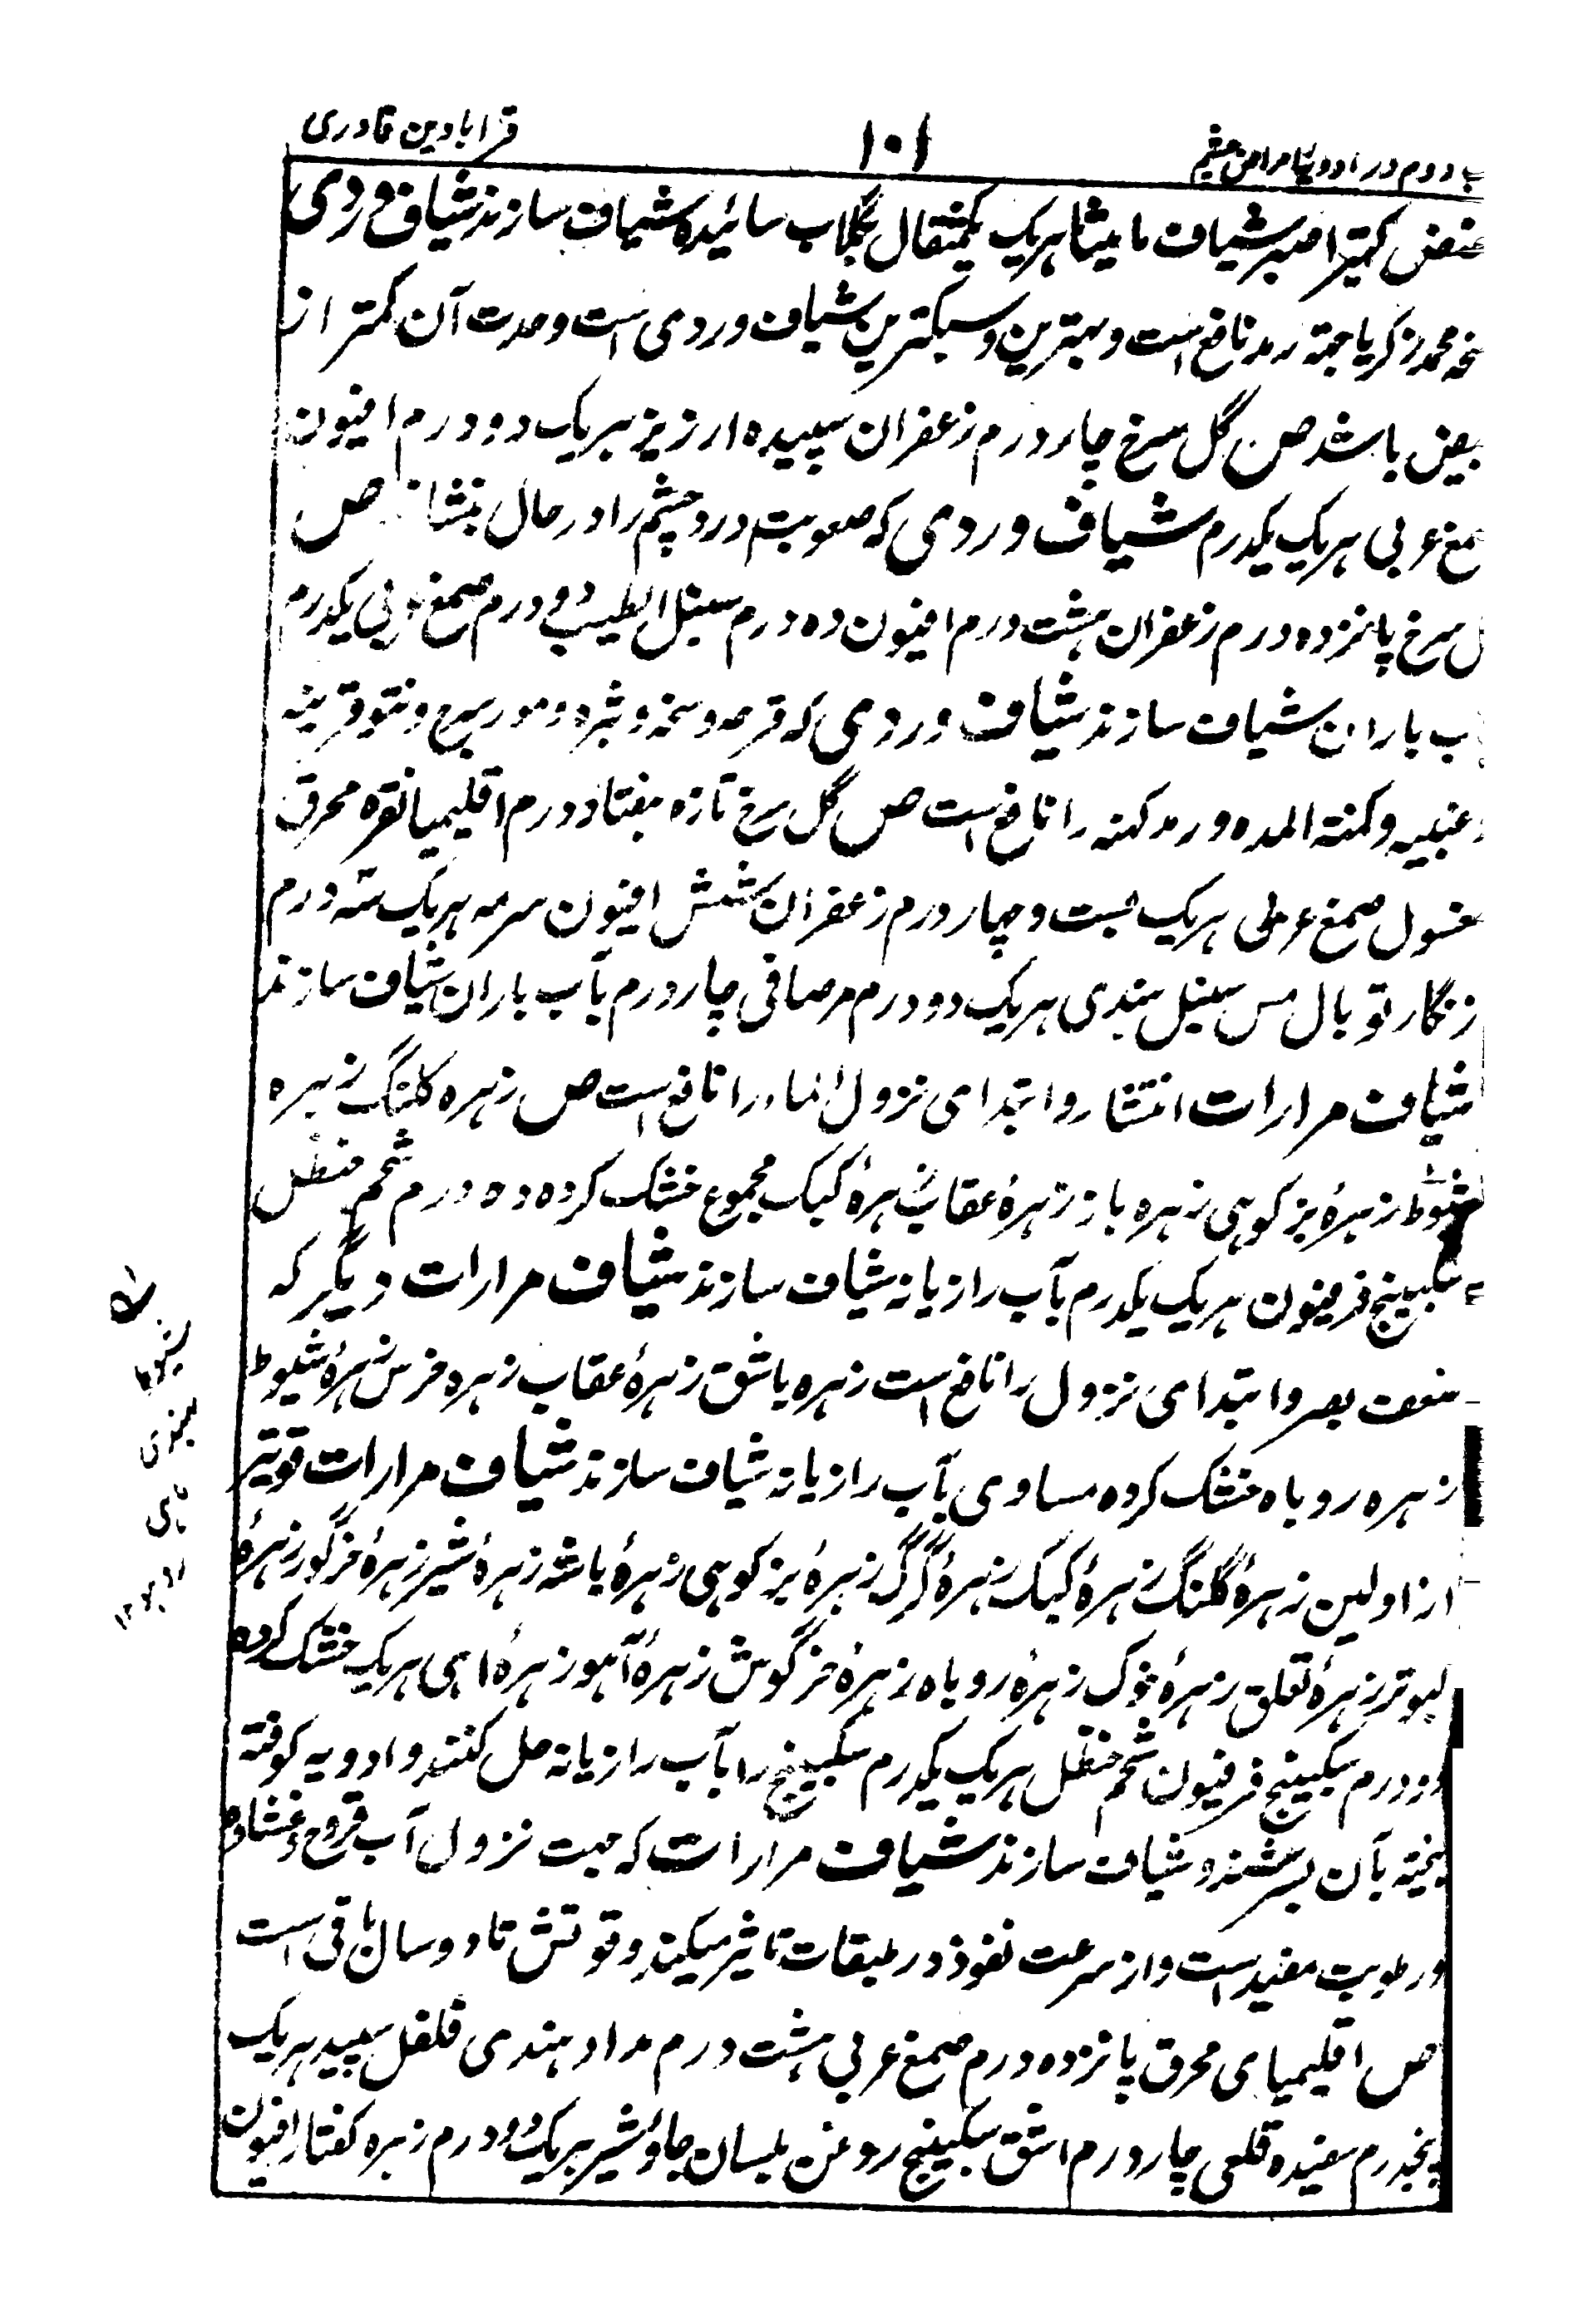 ب دوم در ادویہ امراض چشم ۱۰۱ قرابادین قادری
کتیرا صبر شیاف مامیثا ہریک یکمثقال بگلاب سائیدہ شیاف سازند شیاف وردی
محمد زکریا جہتہ رمد نافع است و بہترین و سبکترین شیاف وردی است و حدت آن کمتر از
بعض باشد ص گل سرخ چار درم زعفران سپیدہ ارزیز ہریک دو درم افیون
صمغ عربی ہریک یکدرم شیاف وردی کہ صعوبت درد چشم را در حال بنشاند ص
ل سرخ پانزدہ درم زعفران ہشت درم افیون دہ درم سنبل الطیب دو درم صمغ عربی یکدرم
ب باران شیاف سازند شیاف وردی کہ قرحہ و و بثرہ و مورسرج و نتو قرنیہ
عنبیہ و کمنة المدہ و رمد کہنہ را نافع است ص گل سرخ تازہ ہفتاد درم اقلیمیا نقرہ محرق
غسول صمغ عربی ہریک بست و چہار درم زعفران شش افیون سرمہ ہریک سہ درم
زنگار توبال مس سنبل ہندی ہریک دو درم مر صافی چار درم بآب باران شیاف سازند
شیاف مرارات انتشار و ابتدای نزول الماء را نافع است ص زہرہ کلنگ زہرہ
شبوط زہرۂ بز کوہی زہرہ باز زہرۂ عقاب زہرۂ کبک مجموع خشک کردہ دہ درم شحم حنظل
سکبینج فرفیون ہریک یکدرم بآب رازیانہ شیاف سازند شیاف مرارات دیگر کہ
ضعف بصر و ابتدای نزول را نافع است زہرہ باشق زہرۂ عقاب زہرہ خرس زہرۂ شبوط
زہرہ روباہ خشک کردہ مساوی بآب رازیانہ شیاف سازند شیاف مرارات قویتر
از اولین زہرۂ کلنگ زہرۂ کبک زہرۂ گرگ زہرۂ بز کوہی زہرۂ باشہ زہرۂ شیر زہرۂ خرگور زہرۂ
کبوتر زہرۂ لقلق زہرۂ خوک زہرۂ روباہ زہرۂ خرگوش زہرۂ آہو زہرۂ ماہی ہریک خشک کردہ
دو درم سکبینج فرفیون شحم حنظل ہریک یکدرم سکبینج را بآب رازیانہ حل کنند و ادویہ کوفتہ
بیختہ بآن بسرشند و شیاف سازند شیاف مرارات کہ جہت نزول آب قروح و غشاوہ
و رطوبت مفید است و از سرعت نفوذ در طبقات تاثیر میکند و قوتش تا دو سال باقی است
ص اقلیمیای محرق پانزدہ درم صمغ عربی ہشت درم مداد ہندی فلفل سپید ہریک
پنجدرم سفیدہ قلعی چار درم اشق سکبینج روغن بلسان جاؤشیر ہریک دو درم زہرہ کفتار افیون